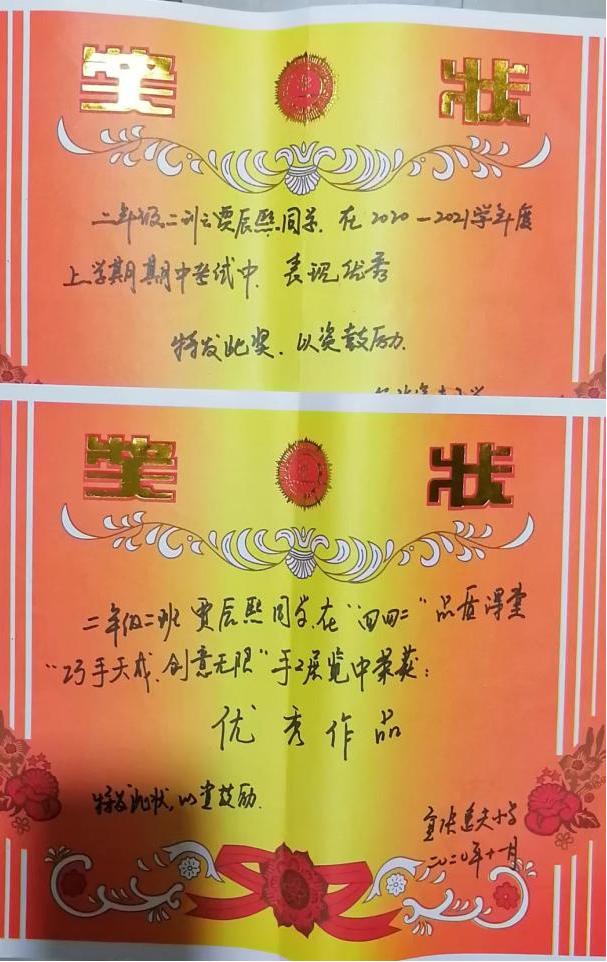 奖 状
二年级二班贾辰熙同学，在2020-2021学年度
上学期期中考试中，表现优秀
特发此奖，以资鼓励
奖 状
二年级二班 贾辰熙同学，在“四四二”品质课堂
“巧手天成，创意无限”手工展览中荣获：
优秀作品
特发此状，以资鼓励
小学
二〇二〇年十一月